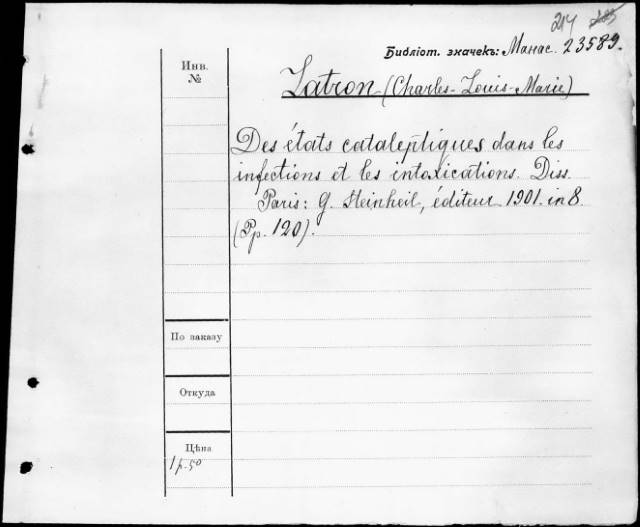 214
Библіот. значекъ: Манас. 23589.
Инв.
№
Latron (Charles-Louis-Marie)
Des états cataleptiques dans les
infections et les intoxications. Diss.
Paris: G. Steinheil, éditeur 1901. in 8.
(Pp. 120).
По заказу
Откуда
Цѣна
1 р. 50